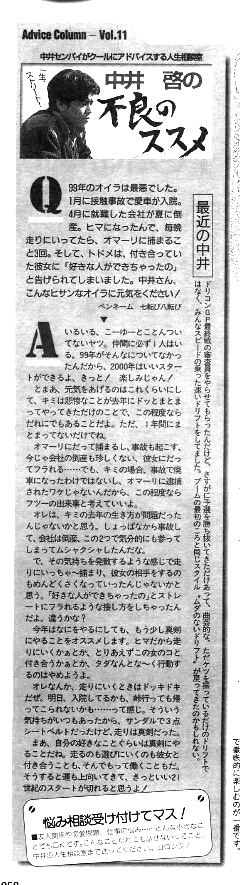 Advice Column – Vol.11
中井センパイがクールにアドバイスする人生相談室
中井 啓の
不良の
ススメ
Q 99年のオイラは最悪でした。
1月に接触事故で愛車が入院。
4月に就職した会社が夏に倒
産。ヒマになったんで、毎晩
走りにいってたら、オマーリに捕まるこ
と3回。そして、トドメは、付き合ってい
た彼女に「好きな人ができちゃったの」
と告げられてしまいました。中井さん、
こんなヒサンなオイラに元気をください!
ペンネーム 七転び八転び
A いるいる、こーゆーとことんつい
てないヤツ。仲間に必ず1人はい
る。99年がそんなについてなかっ
たんだから、2000年はいいスター
トができるよ、きっと! 楽しみじゃん!
とまあ、元気をあげるのはこれくらいにし
て、キミは悲惨なことが去年にドッとまとま
ってやってきただけのことで、この程度なら
だれにでもあることだよ。ただ、1年間にま
とまってないだけでね。
オマーリにだって捕まるし、事故も起こす、
今じゃ会社の倒産も珍しくない、彼女にだっ
てフラれる……でも、キミの場合、事故で廃
車になったわけではないし、オマーリに逮捕
されたワケじゃないんだから、この程度なら
フツーの出来事と考えていいよ。
オレは、キミの去年の生き方が問題だった
んじゃないかと思う。しょっぱなから事故し
て、会社は倒産、この2つで気分的にも参って
しまってムシャクシャしたんだな。
で、その気持ちを発散するような感じで走
りにいっちゃー捕まり、彼女の相手をするの
もめんどくさくなっていったんじゃないかと
思う。「好きな人ができちゃったの」とストレ
ートにフラれるような接し方をしちゃったん
だよ。違うかな?
今年はなにをやるにしても、もう少し真剣
にやることをオススメします。ヒマだから走
りにいくかぁとか、とりあえず女のコと
付き合うかぁとか、タダなんとな〜く行動す
るのはやめようよ。
オレなんか、走りにいくときはドッキドキ
だぜ。明日、入院してるかも、峠行っても帰
ってこられないかも……って感じ。そういう
気持がいつもあったから、サンダルで3点
シートベルトだったけど、走りは真剣だった。
まあ、自分の好きなことぐらいは真剣にや
ることだね。走るのも遊びにいくのも彼女と
付き合うことも、そんでもって働くこともだ。
そうすると運も上向いてきて、きっといい21
世紀のスタートが切れると思うよ!
最近の中井
ドリコンGP最終戦の審査員をやらせてもらったんだけど、さすがに予選を勝ち抜いてきただけあって、個性的な、ただケツを振っているだけのドリフトで
はなく、みんなスピードの乗った速いドリフトをしてましたね。
悩み相談受け付けてマス!